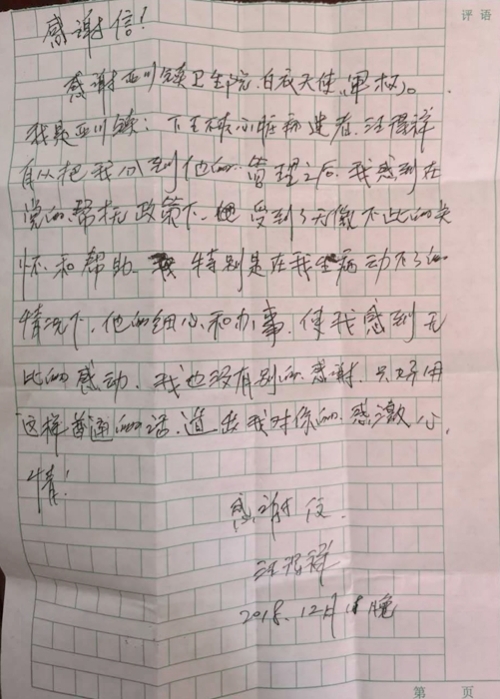 评语
感谢信!
感谢西川镇卫生院,白衣天使,军权)。
我是西川镇:下王村心脏病患者,汪得祥
自从把我分到他的管理之后,我感到在
党的帮扶政策下,受到了无微不至的关
怀和帮助。特别是在我生病动不了的
情况下,他的细心和办事,使我感到无
比的感动,我也没有别的感谢,只好用
这样普通的话,道出我对你的感激心
情!
感谢信。
汪得祥
2018.12月 晚
第 页